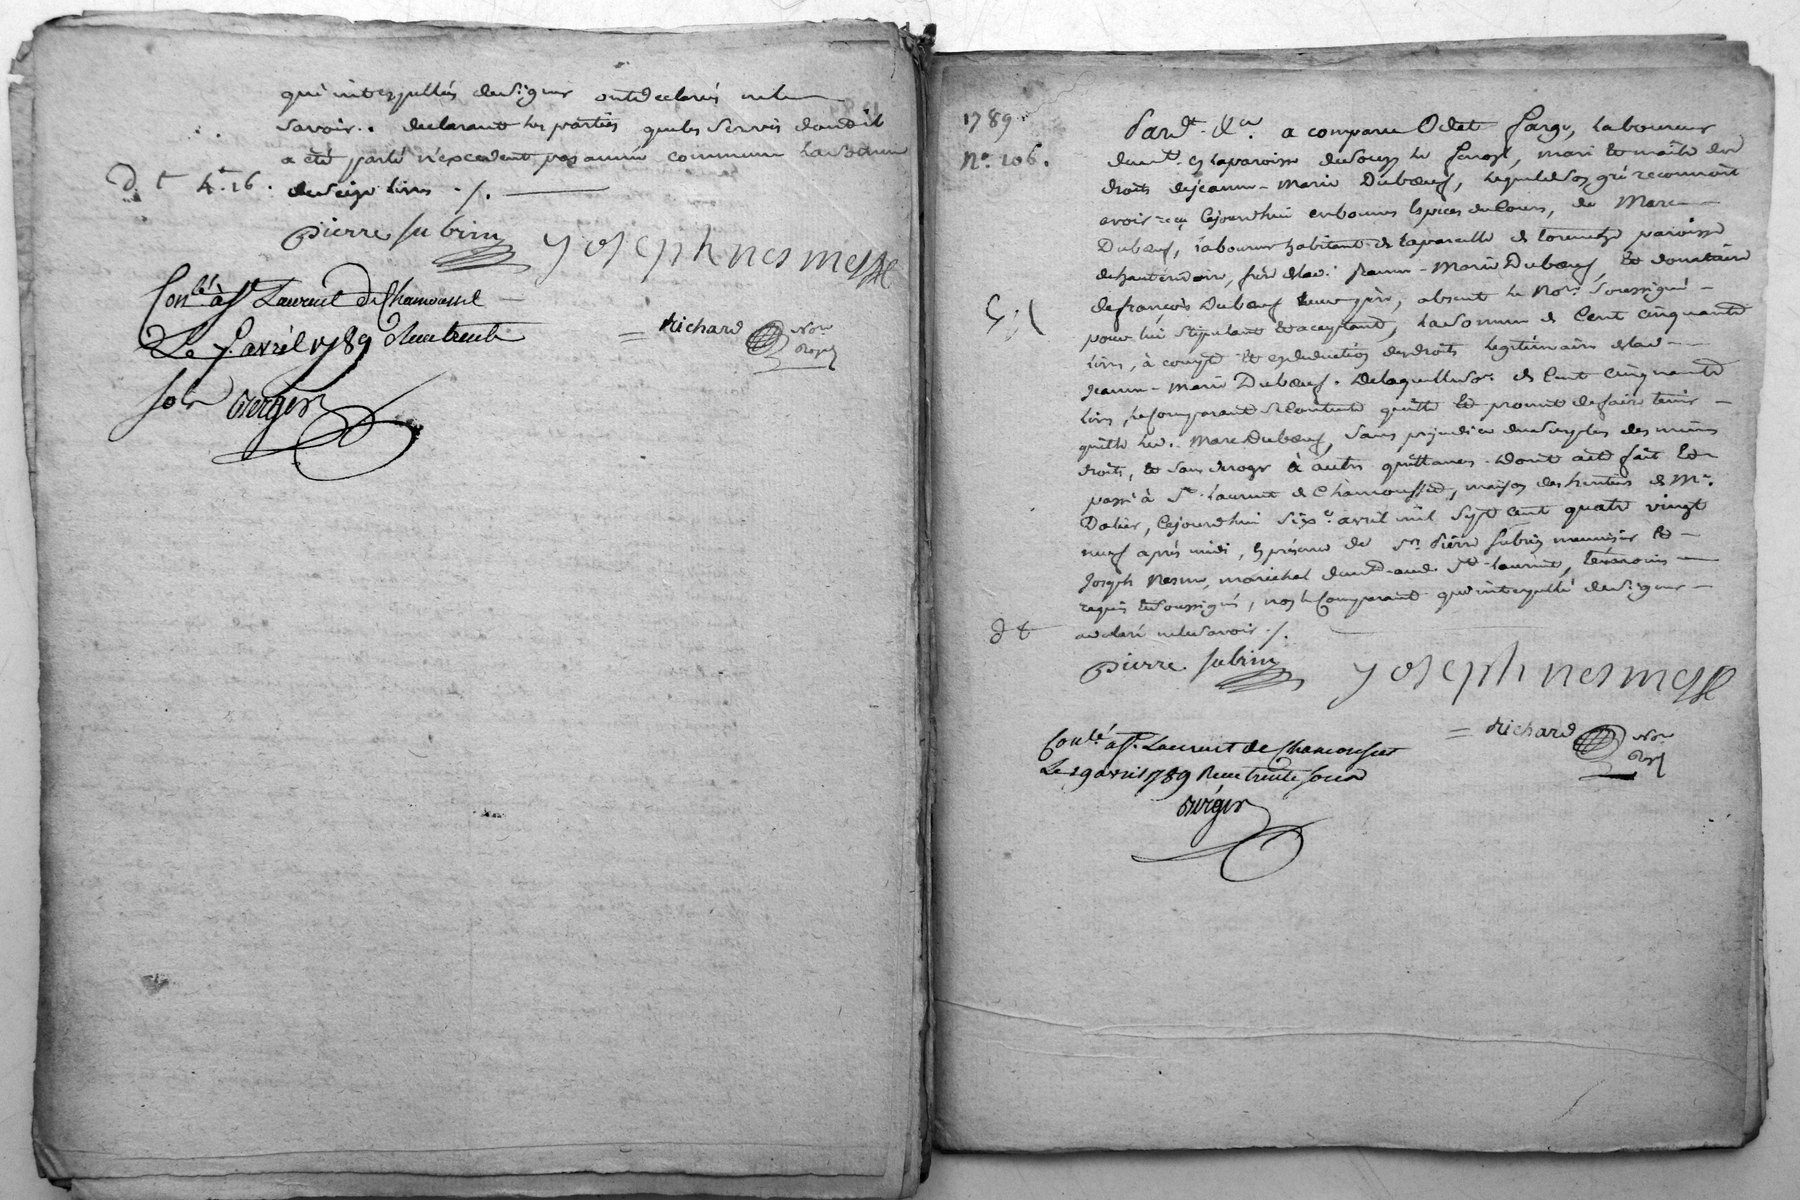 qui interpellés de signer ont declarés ne le
savoir.. declarant les parties que les servis dont il
a été parlé n'excedent pas année commune la somme
D. t 4.t 16.
de seize livres ./.
pierre subrin
joseph nesme
Conlé à St. Laurent de Chamousset
Le 7. avril 1789 Reçu trente
sols Berger
Richard Nore
Royal
1789.
No. 106.
Pardt. &ca. a comparu Odet farge, laboureur
demt. en la paroisse de Souzy le , mari et maitre des
droits de jeanne-Marie Duboeuf, lequel de son gré reconnoit
avoir reçu cejourd'hui en bonnes especes de Cours, de Marc
Duboeuf, laboureur habitant de la parcelle de paroisse
de hauterivoire, frere de lad. jeanne-Marie Duboeuf, et donataire
de françois Duboeuf leur pere, absent le Nore. Soussigné
pour lui stipulant et acceptant, la somme de Cent cinquante
livres, à compte et en deduction des droits legitimaires de lad.
jeanne-Marie Duboeuf. De laquelle so: de Cent cinquante
livres, le Comparant se contente quitte et promet de faire tenir
quitte led.. Marc Duboeuf, sans prejudice du surplus des memes
droits, et sans deroger à autres quittances. Dont acte fait et
passé à St. Laurent de Chamousset, maison des heritiers de Mr.
Dalier, cejourd'hui sixe. avril mil sept cent quatre vingt
neuf après midi, en présence de Sr. Pierre Subrin menuisier et
Joseph Nesme, marechal demt. aud. St. Laurent, temoins
requis et soussignés, non le Comparant qui interpellé de signer
a declaré ne le savoir ./.
d t
pierre subrin
joseph nesme
Conlé. à St. Laurent de Chamousset
Le 19 avril 1789 Reçu trente sous
Berger
Richard Nore
Royal